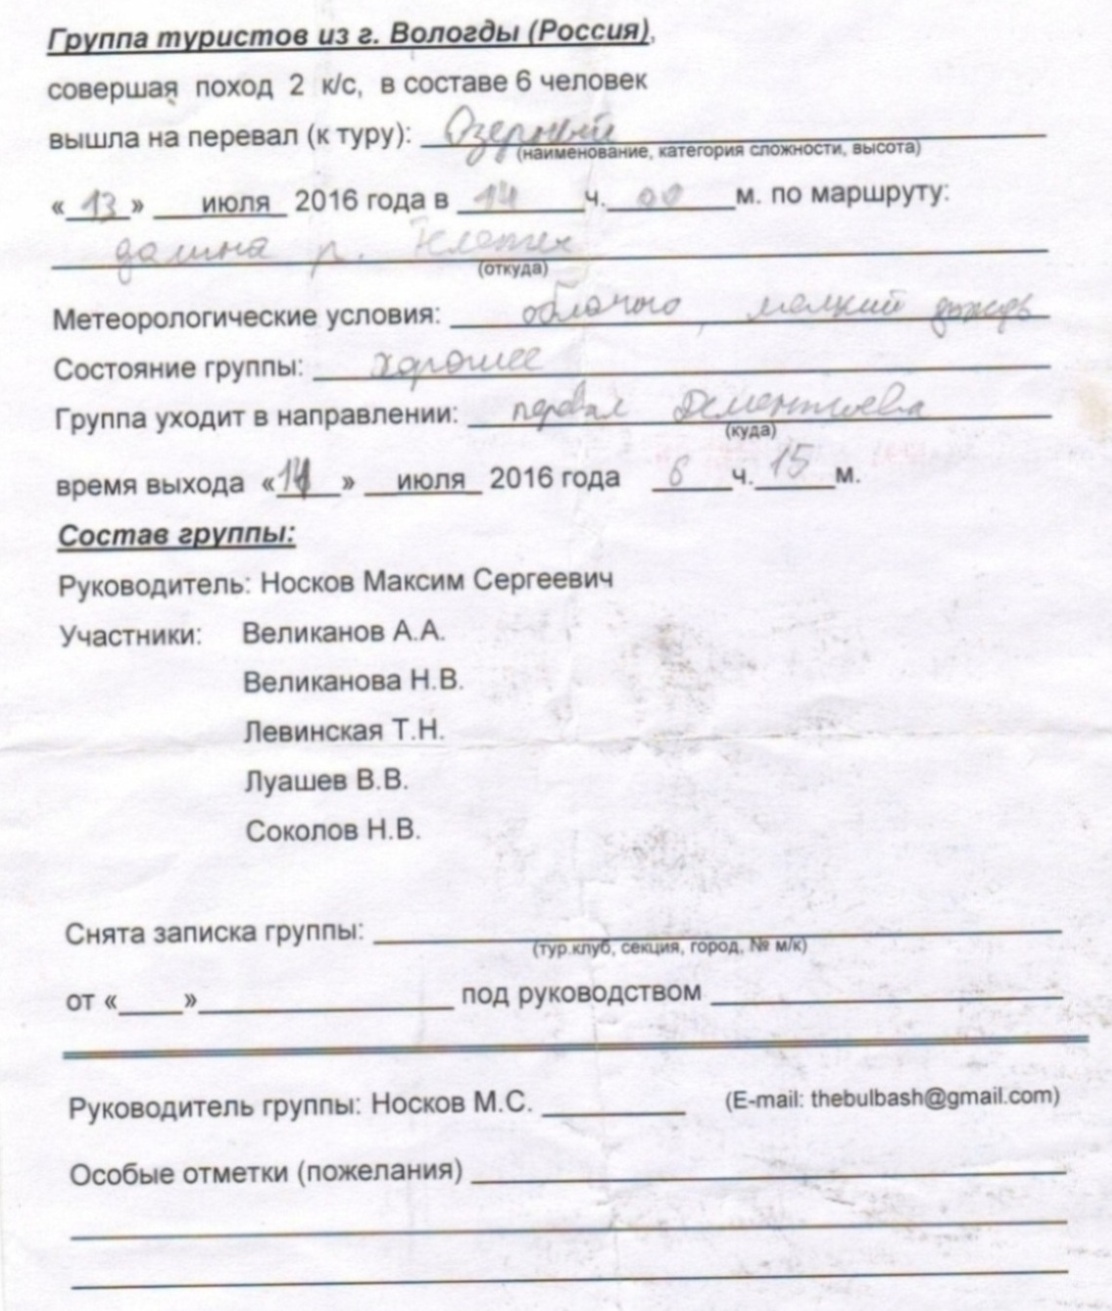 Группа туристов из г. Вологды (Россия),
совершая поход 2 к/с, в составе 6 человек
вышла на перевал (к туру): Озерный
(наименование, категория сложности, высота)
«13» июля 2016 года в 14 ч. 00 м. по маршруту:
долина р.
(откуда)
Метеорологические условия: облачно, мелкий дождь
Состояние группы: хорошее
Группа уходит в направлении: перевал Дементьева
(куда)
время выхода «14» июля 2016 года 6 ч. 15 м.
Состав группы:
Руководитель: Носков Максим Сергеевич
Участники: Великанов А.А.
Великанова Н.В.
Левинская Т.Н.
Луашев В.В.
Соколов Н.В.
Снята записка группы:
(тур.клуб, секция, город, № м/к)
от «____»____ под руководством
Руководитель группы: Носков М.С. ____ (E-mail: thebulbash@gmail.com)
Особые отметки (пожелания)